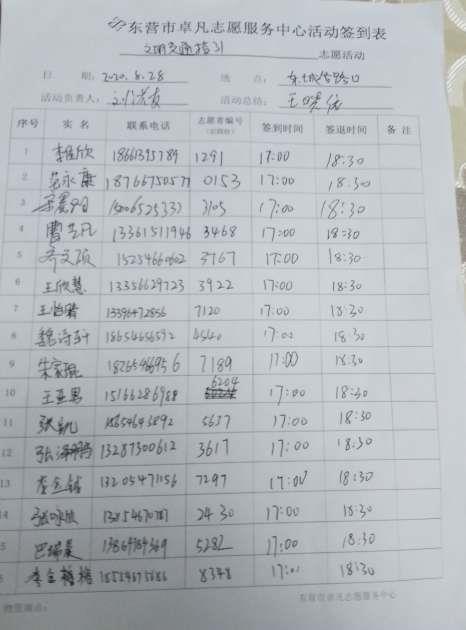 东营市卓凡志愿服务中心活动签到表
文明交通指引 志愿活动
日 期: 2020.8.28 地 点: 东城
活动负责人: 活动总结: 王晓
序号 实 名 联系电话 志愿者编号 签到时间 签退时间 备 注
1 李 欣 18661395789 1291 17:00 18:30
2 永康 18766750577 0153 17:00 18:30
3 15006525333 3105 17:00 18:30
4 曹 凡 13361511946 3468 17:00 18:30
5 齐文硕 15234660602 3767 17:00 18:30
6 王欣慧 13356629723 3922 17:00 18:30
7 王怡晴 13396472856 7120 17:00 18:30
8 魏诗轩 18654656592 4540 17:00 18:30
9 朱家琨 7189 17:00 18:30
6204
10 王亚男 15166286988 17:00 18:30
11 张凯 5637 17:00 18:30
12 张 鹏 13287300612 3617 17:00 18:30
13 李金 13205471156 7297 17:00 18:30
14 张咏欣 2430 17:00 18:30
5 巴瑞晨 13864784369 5282 17:00 18:30
李金梅 8348 17:00 18:30
东营市卓凡志愿服务中心